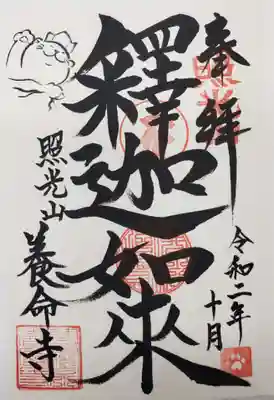 奉拝
釋迦如來
照光山
養命寺
令和二年
十月